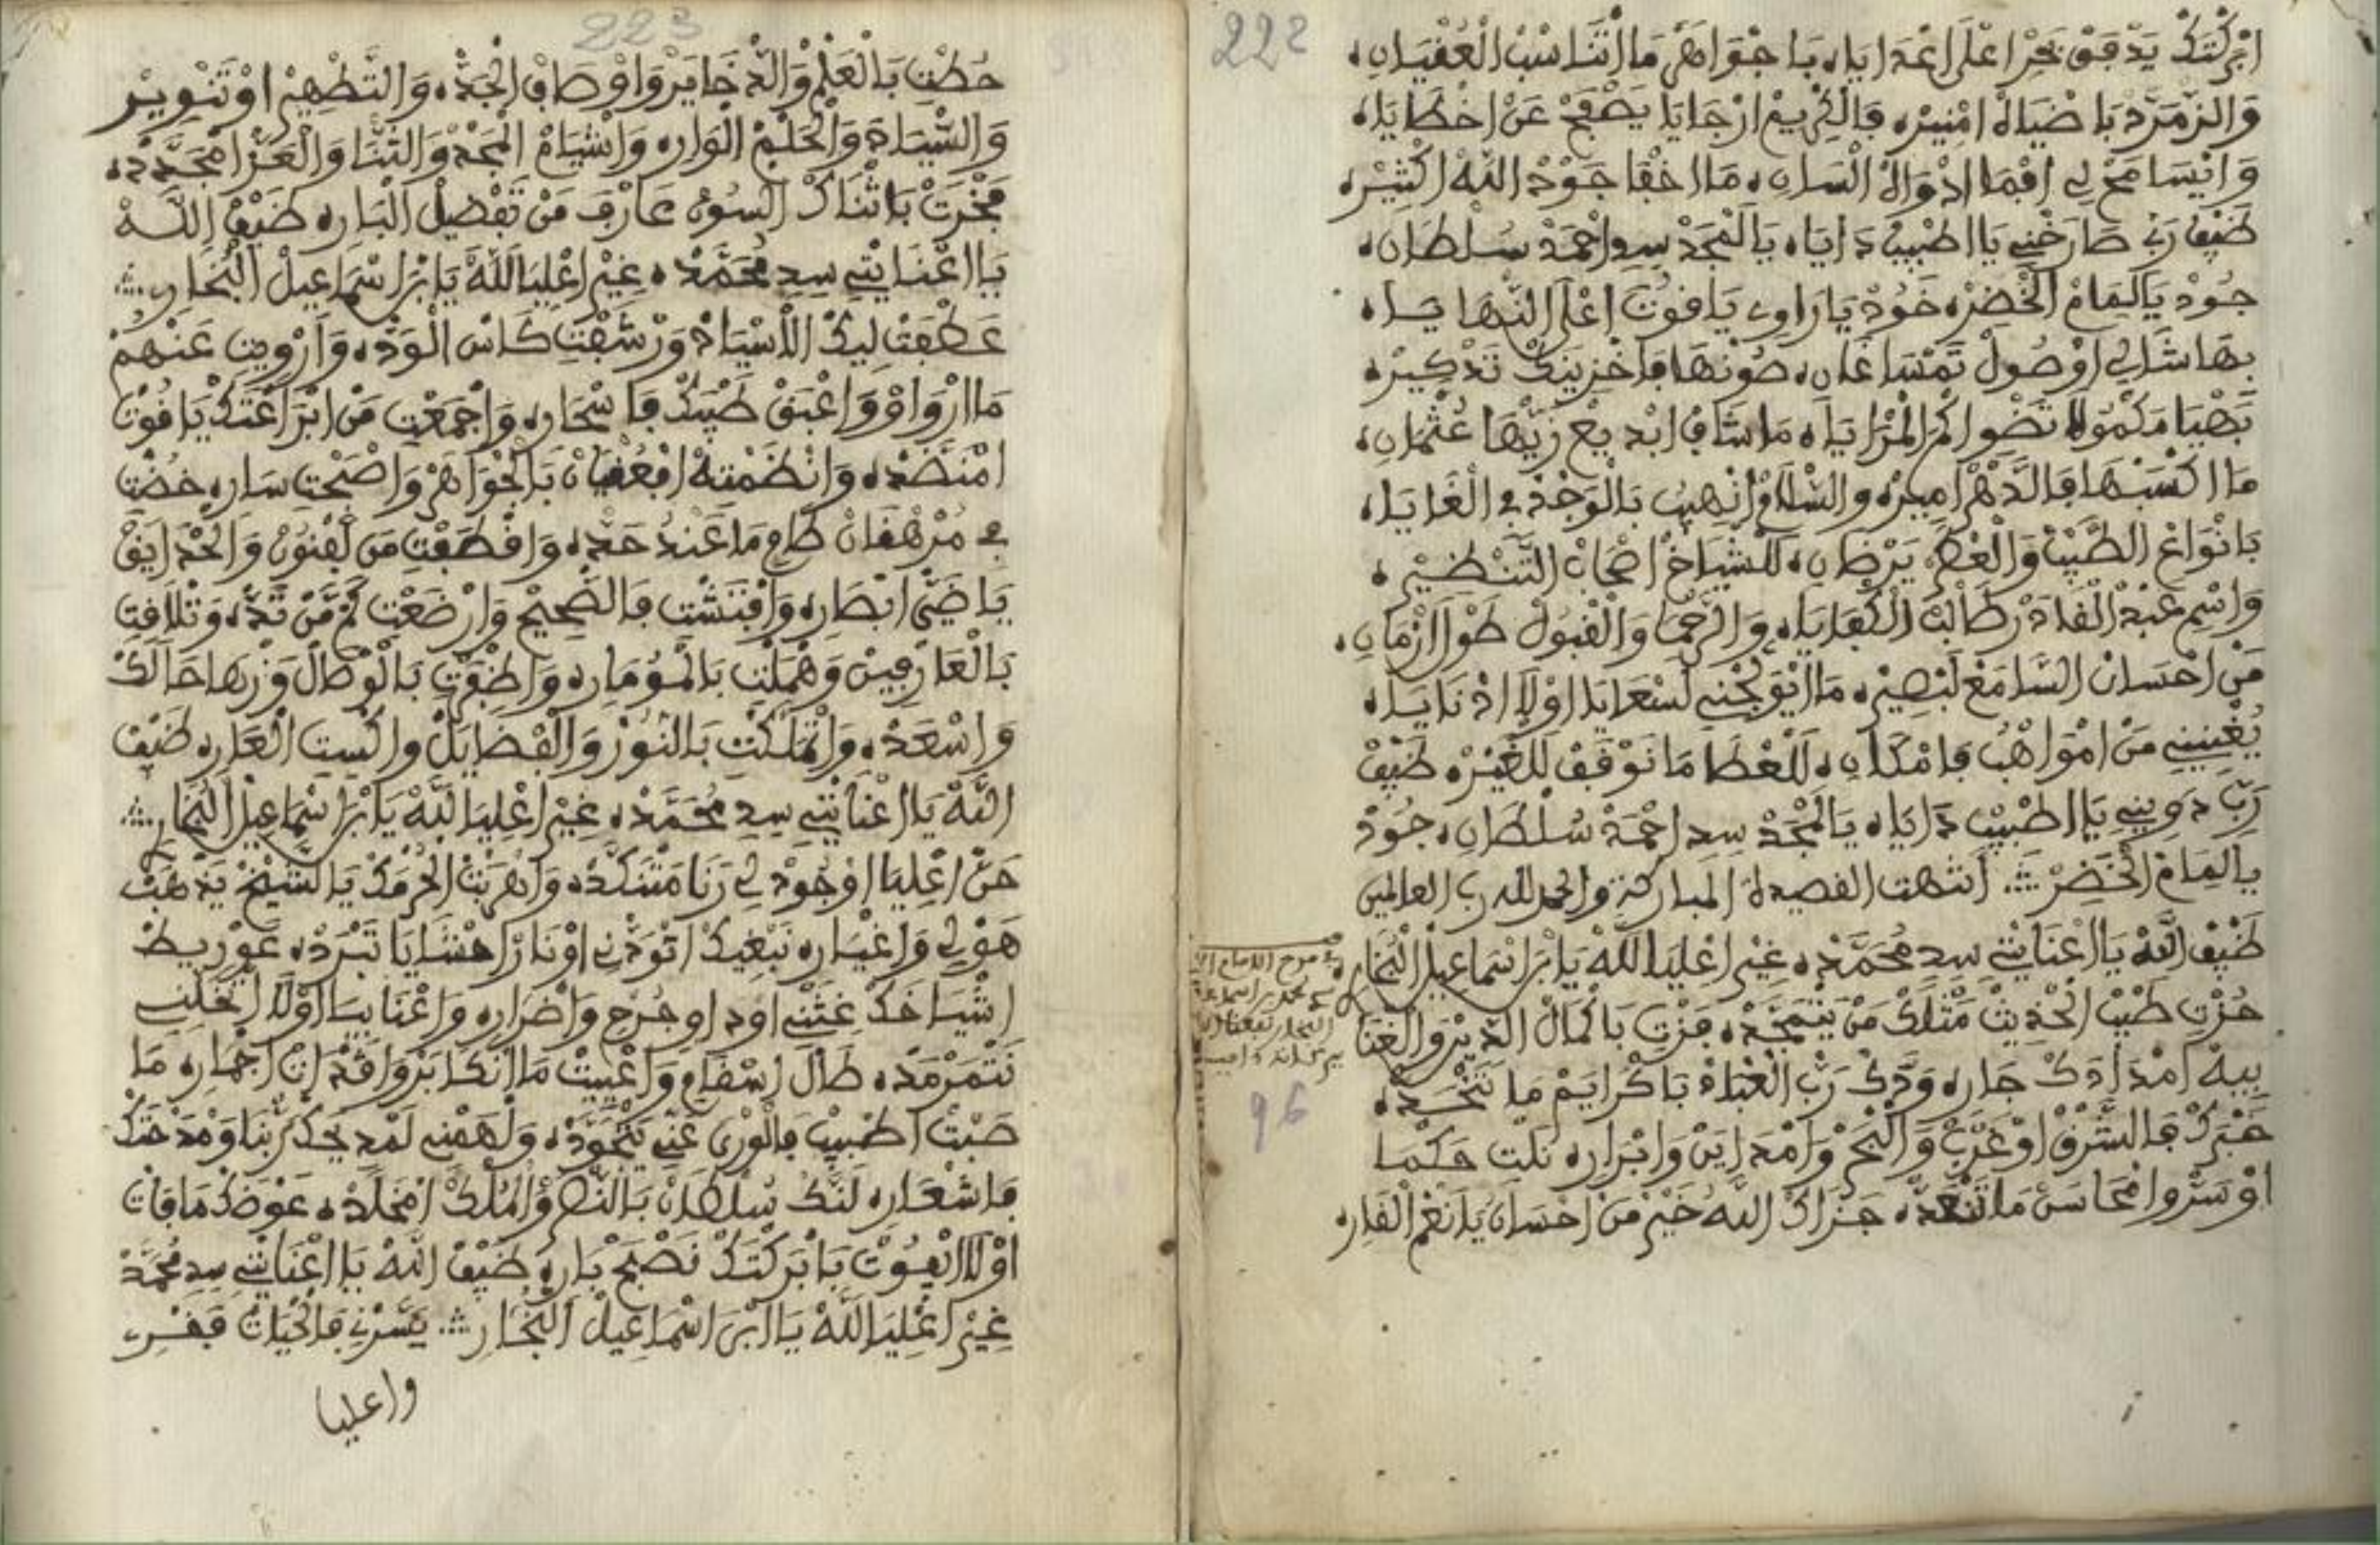 222
ابركتك يدفق بحرا على اعدايا، باجواهر ما اتناسب العقيان،
والزمرد باضيات امنيره، فالكريم ارجايا يصفح عن اخطايا،
وايسامح لي افما ادوات السان، ما اخفا جود الله اكثيره،
ضيف ربي صارخني يا اطبيب دايا، يا لمجد سيد احمد سلطان،
جود يا لمام الخضره خود يا راوي ياقوت اعلى النهايا،
بها شالي اوصول تمسا غان، صونها فاخزينك تذكيره
بهيا مكمولا تضوا كم المزايا، ما شاف ابديع زيها عثمان،
ما اكسبها فالدهر اميره والسلام انهيب بالوجد في الغايا،
بانواع الطيب والعطر يرضان، للشياخ اصحاب التنظيره،
واسم عبد القادر طالب الكفايا، والرحما والقبول طول ازمان،
من احسان السامع لبصيره، ما ايوجني لسعايا اولا اذنايا،
يغنيني من امواهب فامكان، للعطا ما نوقف للغيره ضيف
ربي دويني يا اطبيب دايا، يا لمجد سيد احمد سلطان، جود
يا لمام الخضر انتهت القصيدة المباركة والحمد لله رب العالمين
ضيف الله يا اعنايتي سيد محمد، غير اعليا لله يا بن اسماعيل البخار،
حزت طيب الحديث مثلك من يتمجد، فزت باكمال الدين والغنا
بيه امدادك جار، ودك رب العباد باكرايم ما تتجحد،
خبرك فالشرق اوغرب والبحر وامداين وابرار، نلت حكما
اوسر وامحاسن ما تنعد، جزاك الله خير من احسان يا نعم القار،
في مدح الامام
محمد بن اسماعيل
البخار نفعنا الله
ببركاته امين
96
223
حطت بالعلم والدخاير واوصاف الجد، والتطهير اوتنوير
والسيادة والحلم الوار، وانشيام المجد والثنا والعز امجدد،
فخرت باثناك السون عارف من تفضيل البار، ضيف الله
يا اعنايتي سيد محمد، غير اعليا لله يا بن اسماعيل البخار
عطفت ليك الاسياد ورشفت كاس الود، واروين عنهم
ما ارواو واعبق طيبك فاسحار، واجمعت من ابراعتك ياقوت
امنضد، وانظمته افعقيان بالجواهر واصبحت سار، خضت
في مرهفان طاع ما عند حد، واقطفت من لفنون والحدايق
ياضي ابصار، وافتشت فالصحيح وارضعت كم من تد، وتلاقت
بالعارفين وهملت بالمومار، واضفرت بالوصال وزها حالك
واسعد، واتملكت بالنور والفضايل واكسيت العار، ضيف
الله يا اعنايتي سيد محمد، غير اعليا لله يا بن اسماعيل البخار
حن اعليا اوجود لي رنا متنكد، واهربت الحرمك يا لشيخ يذهب
هولي واغيار، نبغيك اتودني اونار احشايا تبرد، عوريط
اشياخك غثني اود اوجرح واضرار، واعنا بيا اولا اتخليني
نتمرمد، طال اسقامي واعييت ما انكابر واقدات اجمار، ما
صبت اطبيب فالورى عني يتجود، ولهمني لمديحك ربنا ومدحتك
فاشعار، لنك سلطان بالنصر والملك امخلد، عوضك ما فات
اولا ايفوت بابركتك نصبح بار، ضيف الله يا اعنايتي سيد محمد
غير اعليا لله يا ابن اسماعيل البخار يسرني فالحيات قفر
واعليا